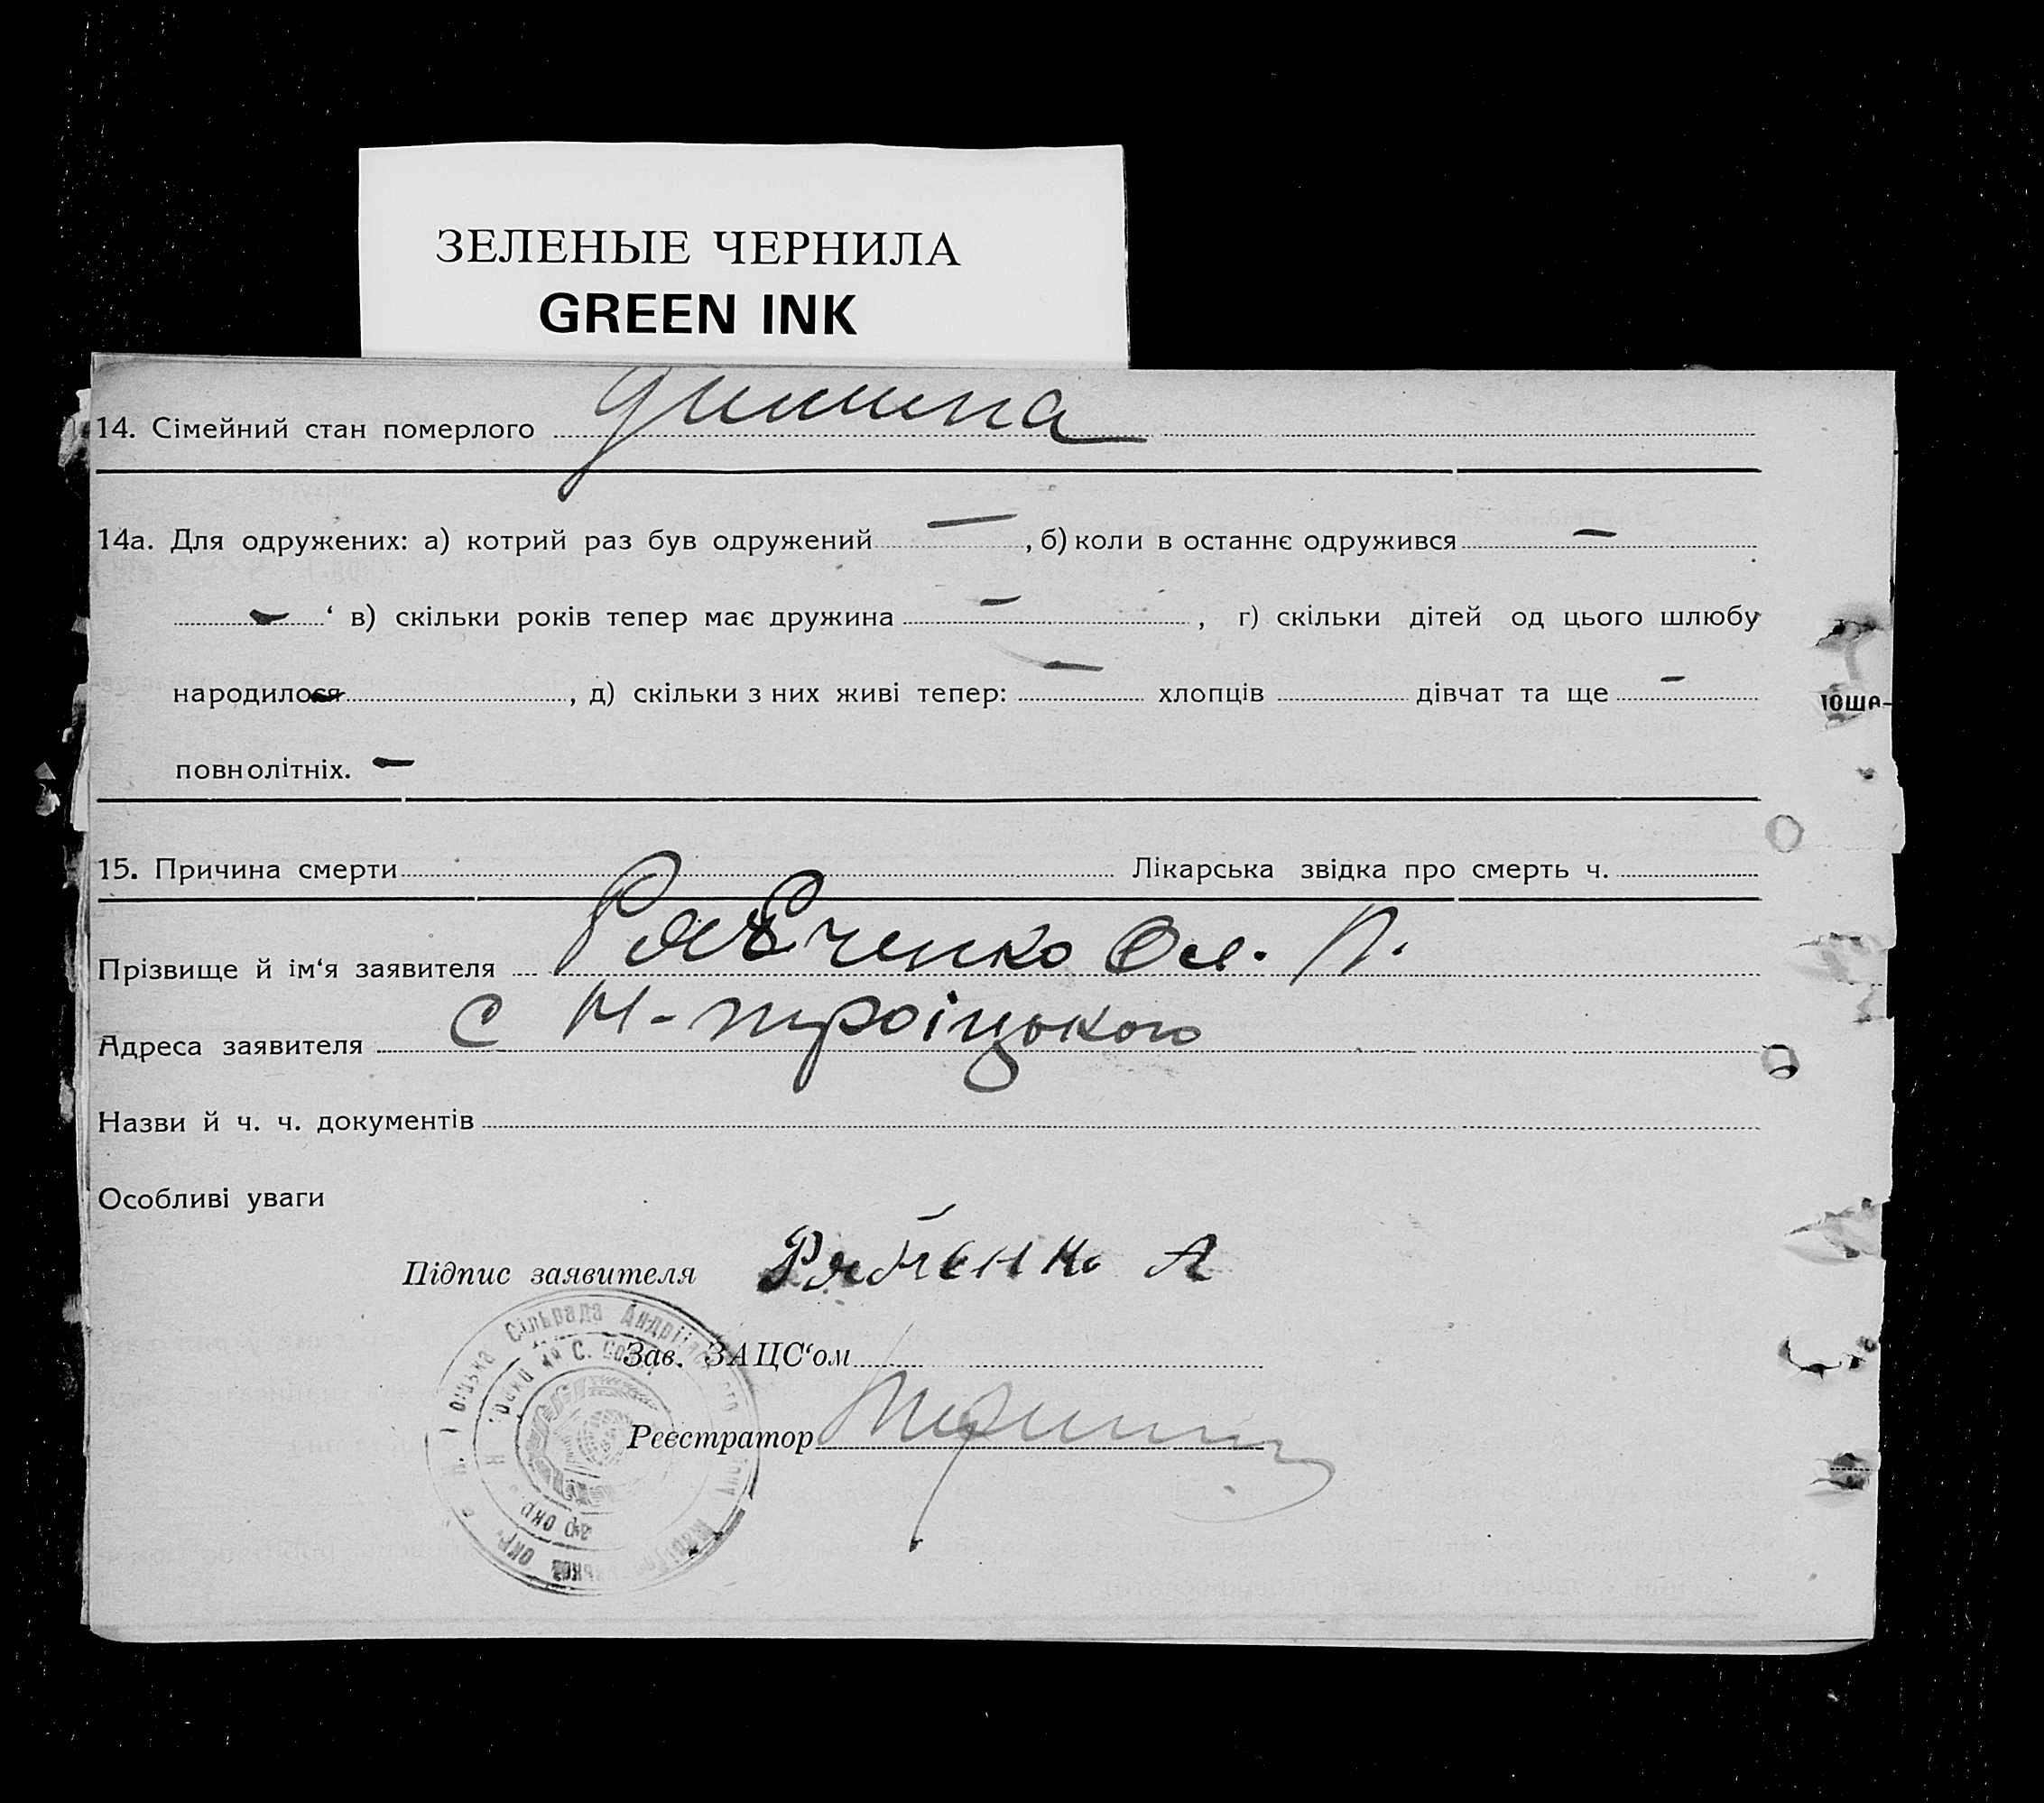 ЗЕЛЕНЫЕ ЧЕРНИЛА
GREEN INK
14. Сімейний стан померлого дитина
14а. Для одружених: а) котрий раз був одружений —, б) коли в останнє одружився —
— ‘ в) скільки років тепер має дружина —, г) скільки дітей од цього шлюбу
народилося —, д) скільки з них живі тепер: — хлопців дівчат та ще —
повнолітніх. —
15. Причина смерти Лікарська звідка про смерть ч.
Прізвище й ім‘я заявителя Рябченко Ол. П.
Адреса заявителя с Н-троіцького
Назви й ч. ч. документів
Особливі уваги
Підпис заявителя Рябченко А
Зав. ЗАЦС‘ом
Реєстратор
Сільрада